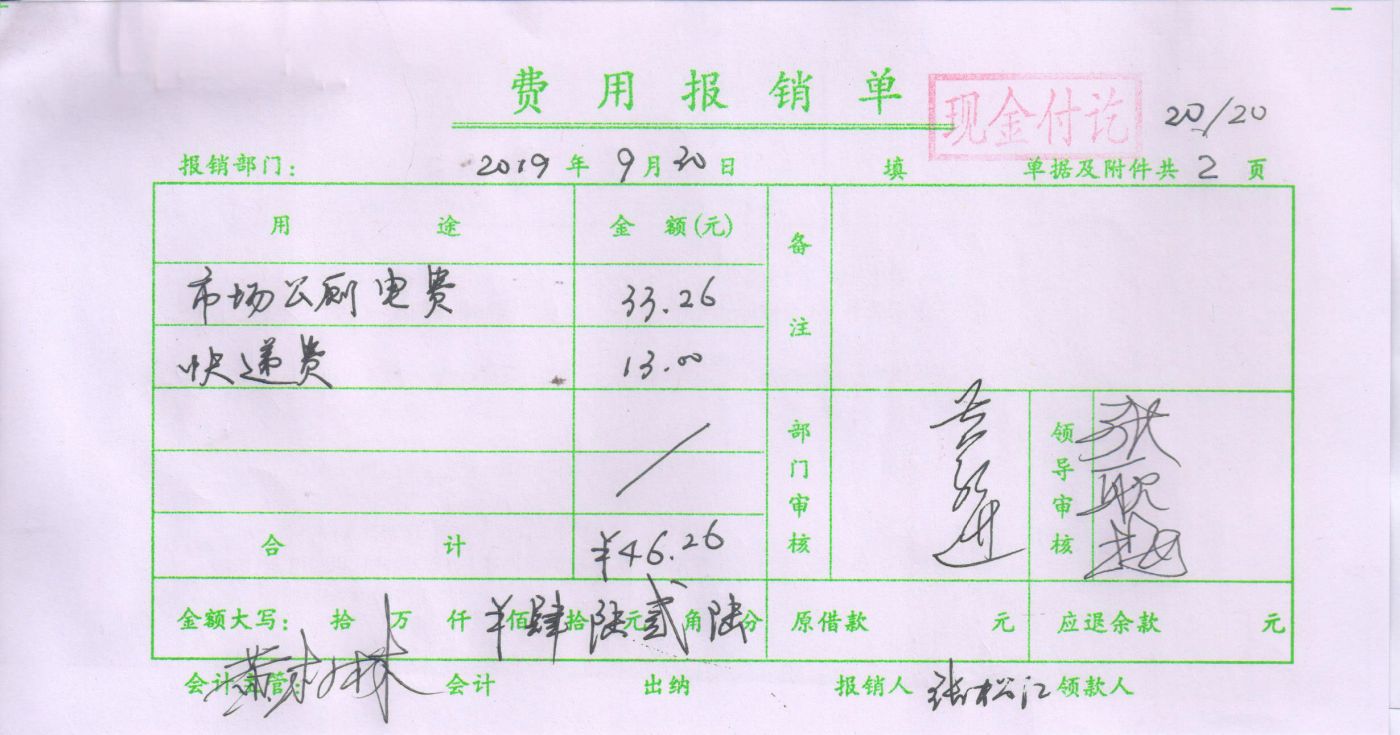 费用报销单
现金付讫
20/20
报销部门： 2019年9月30日 填 单据及附件共 2 页
用途 金额(元) 备注
市场公厕电费 33.26
快递费 13.00
部门审核 领导审核
合计 ¥46.26
金额大写： 拾 万 仟 ¥佰 肆拾 陆元 贰角 陆分 原借款 元 应退余款 元
会计主管： 会计 出纳 报销人 张松江 领款人